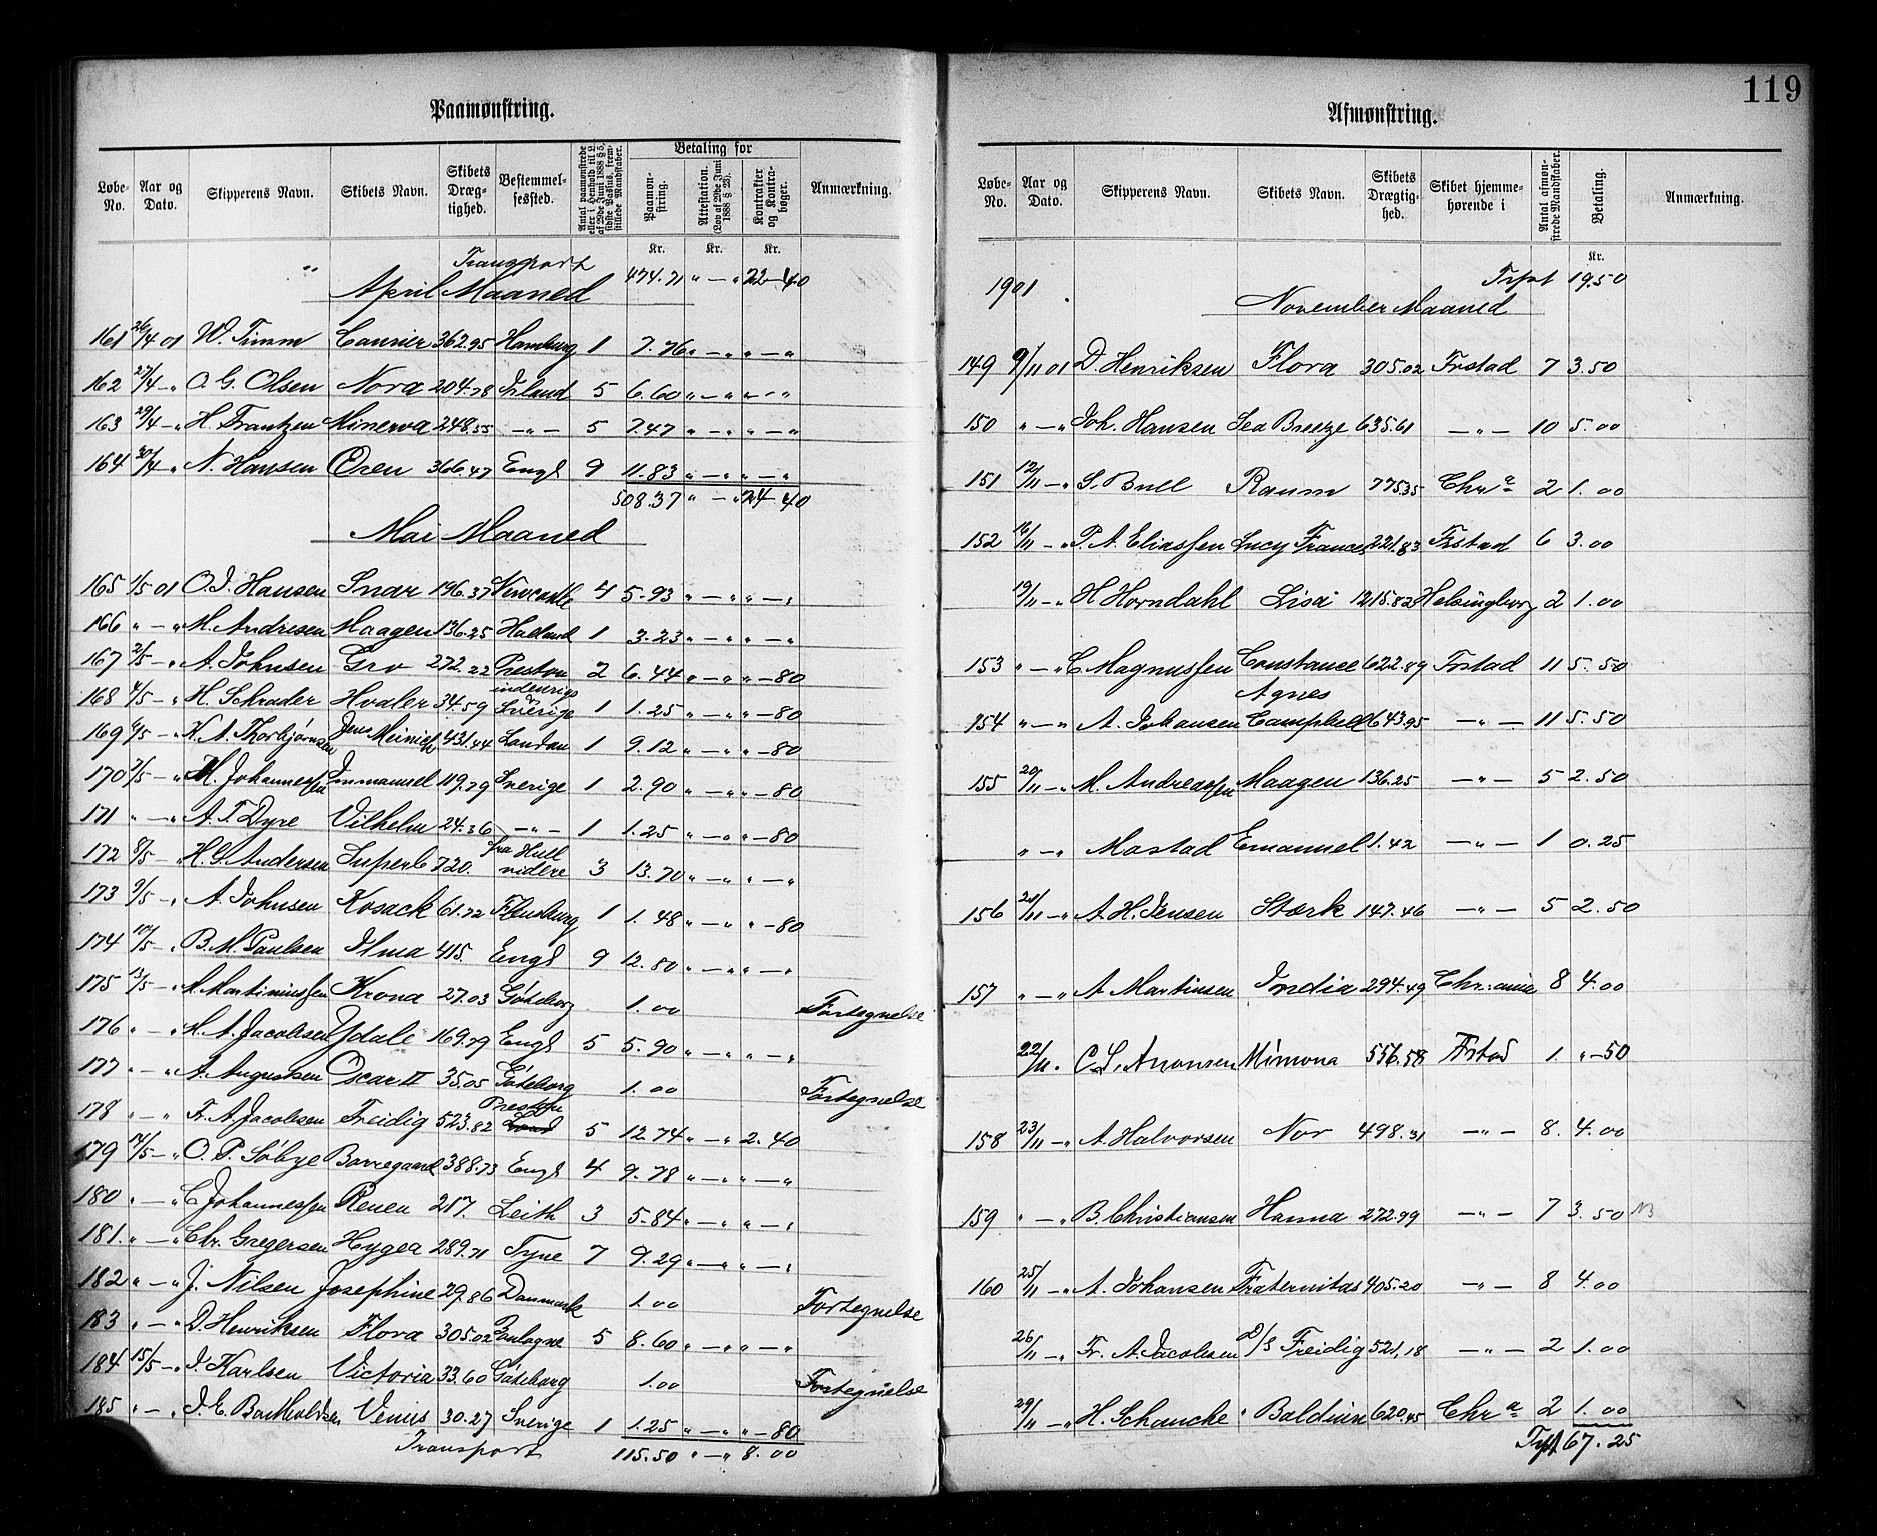 119
Paamønstring.
Løbe-No. Aar og Dato. Skipperens Navn. Skibets Navn. Skibets Dræg-tighed. Bestemmel-sessted. Antal paamønstrede eller i Henhold til L. af 29de Juni 1888 § 5, sidste Passus, frem-stillede Mandskaber. Betaling for Paamøn-string. Attestation. (Lov af 29de Juni 1888 § 23). Kontrakter og Kontra-bøger. Anmærkning.
Kr. Kr. Kr.
" Transport 474.71 " — " 22-40
April Maaned
161 26/4 01 W. Timm Courier 362.95 Hamburg 1 7.76 " — " " — "
162 27/4 - " O. G. Olsen Nora 204.78 Irland 5 6.60 " — " " — "
163 29/4 - " H. Frantzen Minerva 248.55 — " — 5 7.47 " — " " — "
164 30/4 " N. Hansen Oren 366.47 Engl 9 11.83 " — " " — "
508.37 " — " 24-40
Mai Maaned
165 1/5 01 O. J. Hansen Snar 196.37 Newcastle 4 5.93 " — " " — "
166 " — " M. Andresen Maagen 136.25 Holland 1 3.23 " — " " — "
167 2/5 - " A. Johnsen Gro 272.22 Preston 2 6.44 " — " " — 80
168 4/5 - " H. Schrader Hvaler 34.59 indenrigs Sverige 1 1.25 " — " " — 80
169 6/5 - " K. A. Thorbjørnsen Jens Meinich 431.44 London 1 9.12 " — " " — 80
170 7/5 - " M. Johannessen Immanuel 119.79 Sverige 1 2.90 " — " " — 80
171 " — " A. T. Dyre Vilhelm 24.36 — " — 1 1.25 " — " " — 80
172 8/5 - " H. G. Andersen Superb 720. fra Hull videre 3 13.70 " — " " — "
173 9/5 - " A. Johnsen Kosack 61.72 Flensburg 1 1.48 " — " " — 80
174 10/5 - " B. M. Paulsen Ilma 415. Engl 9 12.80 " — " " — "
175 13/5 - " M. Martiniussen Krona 27.03 Göteborg 1.00 Fortegnelse
176 " — " H. A. Jacobsen Ydale 169.79 Engl 5 5.90 " — " " — "
177 " — " A. Augustsen Oscar II 35.05 Göteborg 1.00 Fortegnelse
178 " — " Fr. A. Jacobsen Freidig 523.82 Preston 5 12.74 " — " 2.40
179 14/5 - " O. P. Söbye Borregaard 388.73 Engl 4 9.78 " — " " — "
180 " — " C. Johannessen Renen 217. Leith 3 5.84 " — " " — "
181. " — " Chr. Gregersen Hygea 289.71 Tyne 7 9.29 " — " " — "
182 " — " J. Nilsen Josephine 29.86 Danmark 1.00 Fortegnelse
183 " — " D. Henriksen Flora 305.02 Boulogne 5 8.60 " — " " — "
184 15/5 - " J. Karlsen Victoria 33.60 Göteborg 1.00 Fortegnelse
185 " — " J. E. Bartholdsen Venus 30.27 Sverige 1 1.25 " — " " — 80
Transport 115.50 " — " 8.00
Afmønstring.
Løbe-No. Aar og Dato. Skipperens Navn. Skibets Navn. Skibets Drægtig-hed. Skibet hjemme-hørende i Antal afmøn-strede Mandskaber. Betaling. Anmærkning.
Kr.
1901 Trpt 19.50
November Maaned
149 9/11 01 D. Henriksen Flora 305.02 Frstad 7 3.50
150 " — " Joh. Hansen Sea Breeze 635.61 — " — 10 5.00
151 12/11 - " S. Bull Raum 775.35 Chr a 2 1.00
152 16/11 - " P. A. Eliassen Lucy Frances 221.83 Frstad 6 3.00
19/11 - " H Horndahl Lisa 1215.82 Helsingborg 2 1.00
153 " — " C. Magnussen Constance 622.89 Frstad 11 5.50
154 " — " A. Johansen Agnes Campbell 643.95 — " — 11 5.50
155 20/11 - " M. Andreassen Maagen 136.25 — " — 5 2.50
" — " Mastad Emanuel 1.42 — " — 1 0.25
156 21/11 - " A. H. Jensen Stærk 147.46 — " — 5 2.50
157 " — " A. Martinsen India 294.49 Chr:ania 8 4.00
22/11. C. L. Aronsen Mimona 556.58 Frstad 1. " -50
158 23/11 - " A. Halvorsen Nor 498.31 — " — 8. 4.00
159 " — " B. Christiansen Hanna 272.79 — " — 7 3.50 NB
160 25/11 - " A. Johansen Fraternitas 405.20 — " — 8 4.00
26/11 - " Fr. A. Jacobsen D/S Freidig 521,18 — " — 2 1.00
29/11 - " H. Schancke Balduin 620.45 Chr a 2 1.00
Trpt 67.25